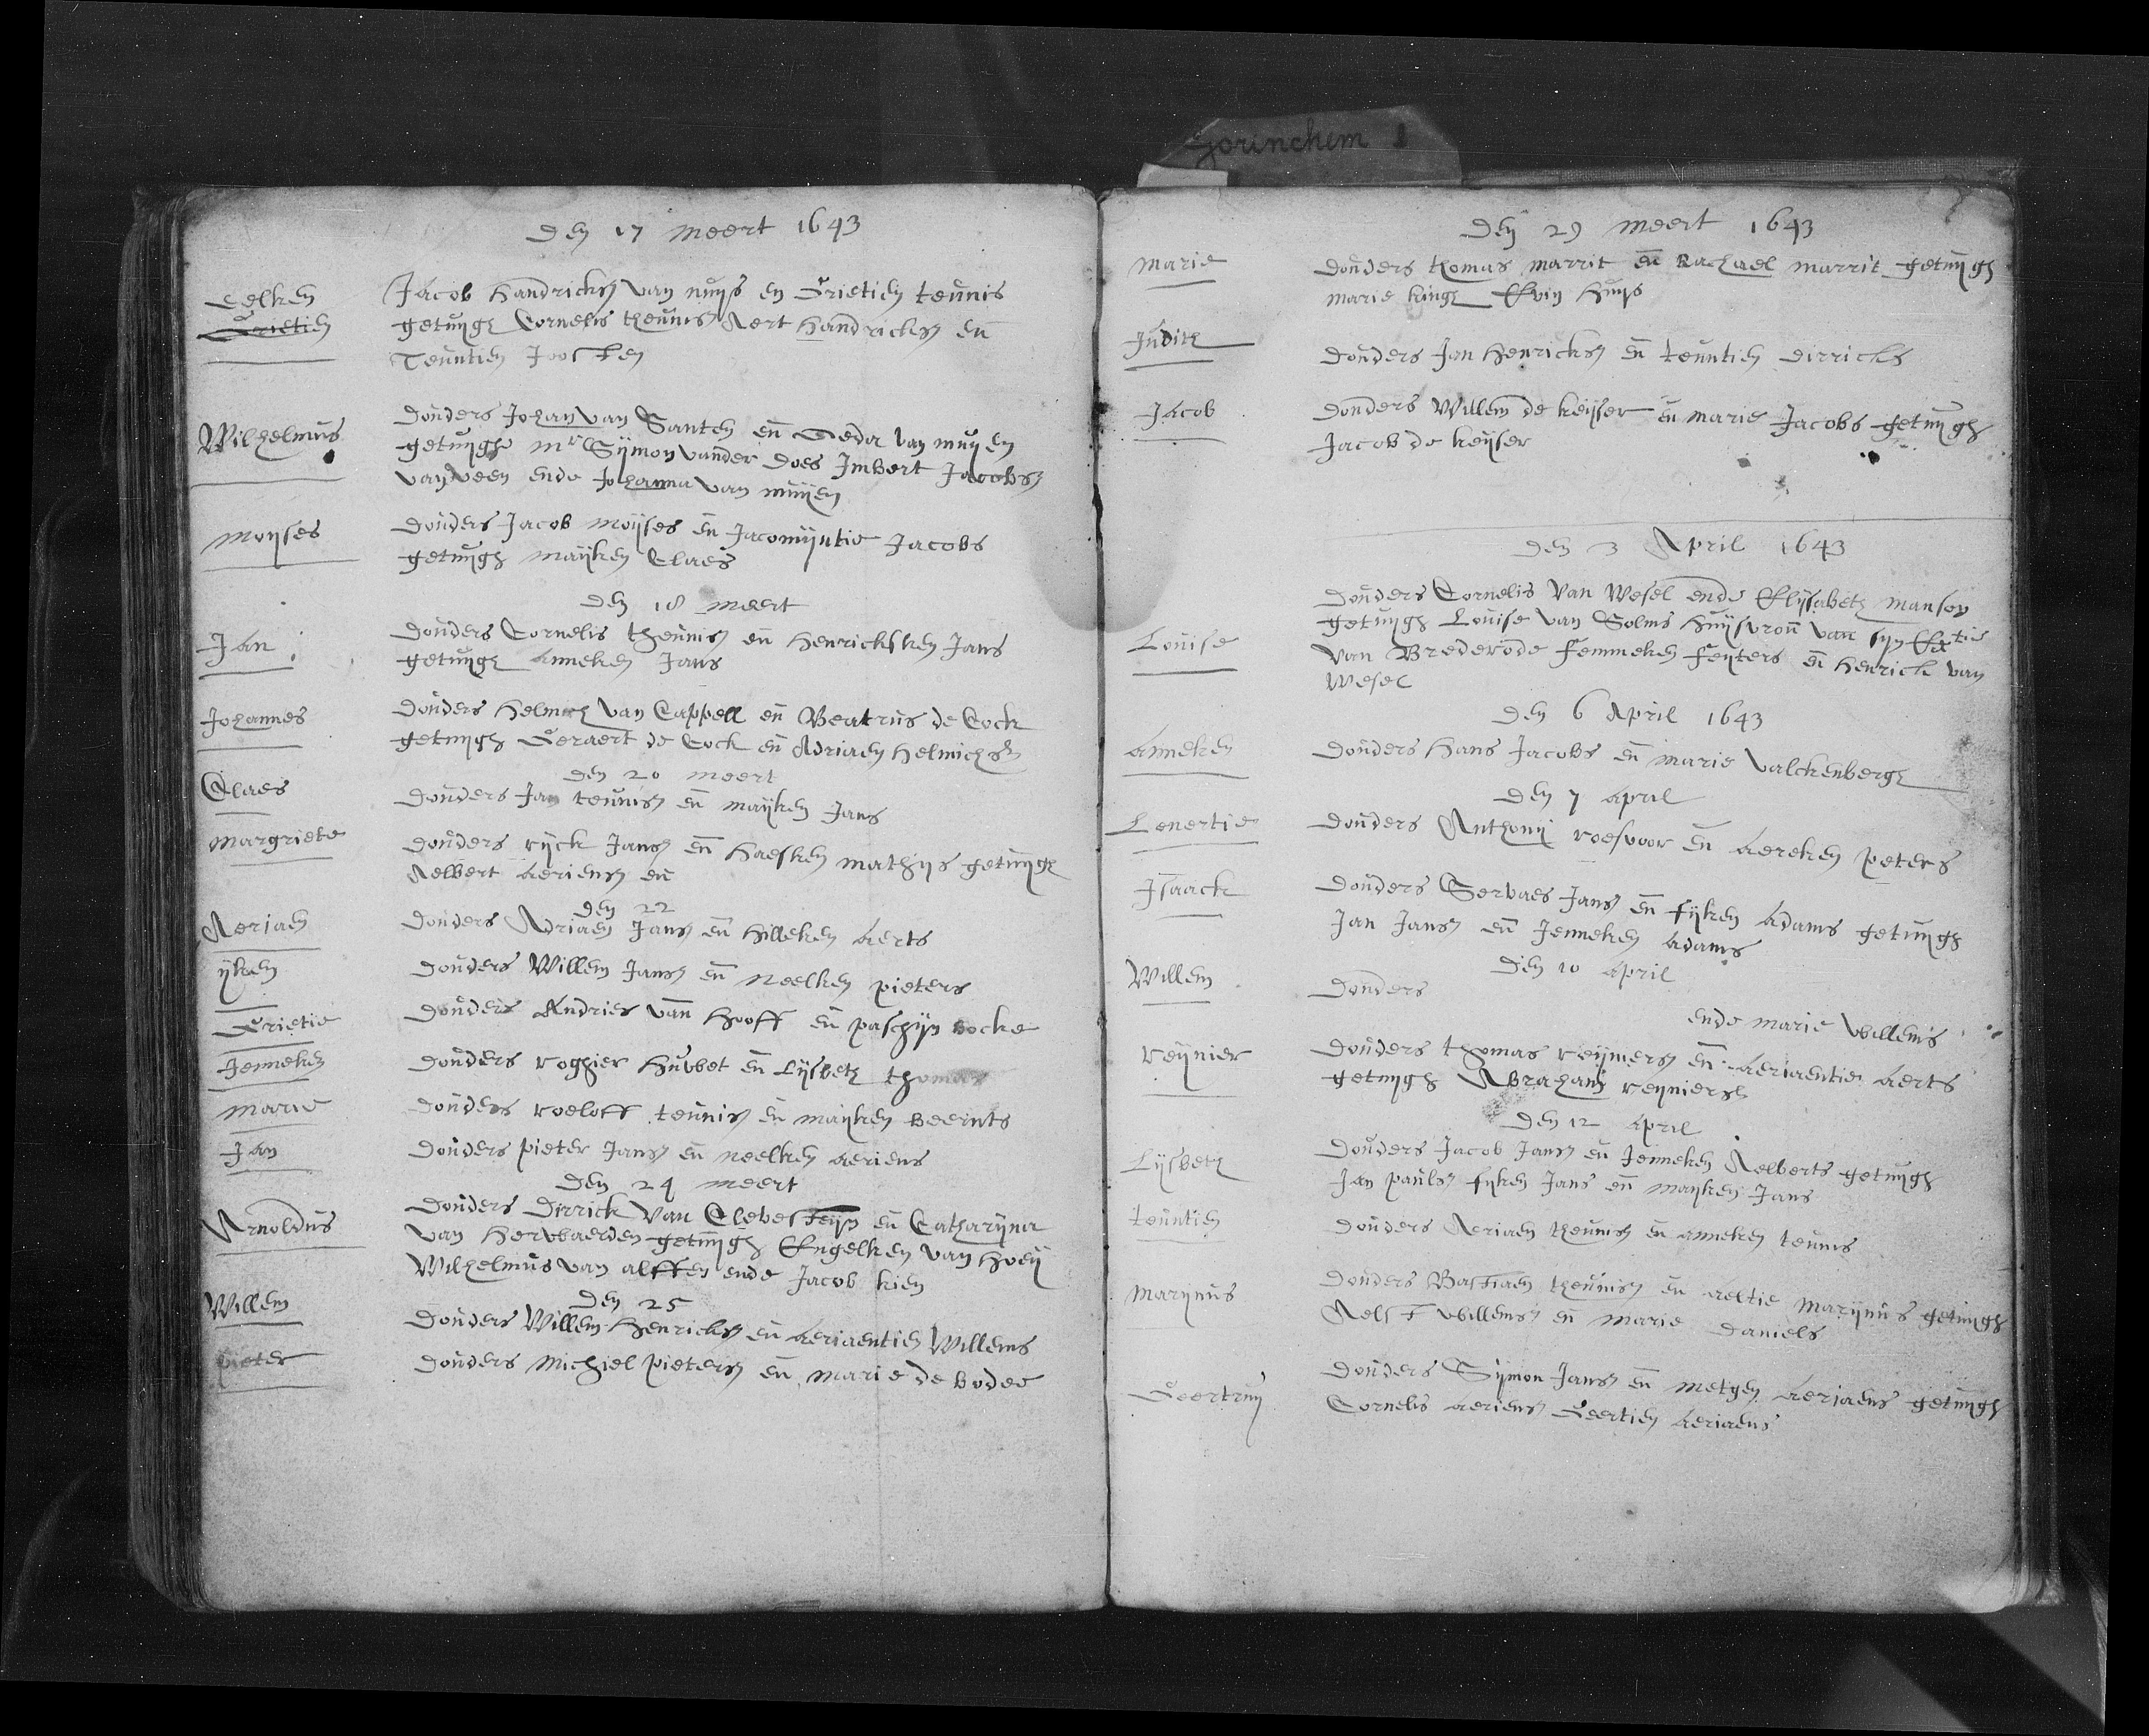 Gorinchem 1
Den 17 meert 1643
Eelken Jacob Handricks van nuijs en Grietien teunis
Grietien getuijge Cornelis theunis Aert Handricks en
Teuntien Joosten
Wilhelmus douders Johan van Santen en Geda van muijen
getuijge mr Sijmon vander Does Imbert Jacobs
van veen ende Johanna van muijen
Moijses douders Jacob moijses en Jacomijntie Jacobs
getuijge maijken Claes
den 18 meert
Jan douders Cornelis theunis en Henricksken Jans
getuijge anneken Jans
Johannes douders Helmich van Cappell en Beatrus de Cock
getuijge Geraert de Cock en Adriaen Helmichs
den 20 meert
Claes douders Jan teunis en maijken Jans
margriete douders rijck Jans en Haesken mathijs getuijge
Aelbert aeriens en
den 22
Aeriaen douders Adriaen Jans en Hilleken aerts
ijken douders Willem Jans en Neelken pieters
Grietie douders Andries van Hooff en paschijn bocke
Jenneken douders roghier Hubbet en Lijsbeth thomas
Marie douders roeloff teunis en maijken beernts
Jan douders pieter Jans en neelken aeriens
den 24 meert
Arnoldus douders Dirrick van Clevesteijn en Catharijna
van Herwaerden getuijge Engelken van Hoeij
Wilhelmus van alffen ende Jacob kien
den 25
Willem douders Willem Henricks en aeriaentien Willems
pieter douders Michiel pieters en marie de bodee
Den 29 meert 1643
Marie douders thomas marrit en Rachael marrit getuijge
marie kinge Elvin Huijs
Judith douders Jan Henricks en teuntien dirricks
Jacob douders Willem de keijser en marie Jacobs getuijge
Jacob de keijser
den 3 April 1643
douders Cornelis van Wesel ende Elijsabeth manson
Louise getuijge Louise van Solms Huijsvrou van sijn Extie
van Brederode Femmeken Feijters en Henrick van
Wesel
den 6 April 1643
Anneken douders Hans Jacobs en marie valckenberge
den 7 april
Lenertie douders Anthonij roesvoor en aereken peters
Isaack douders Servaes Jans en fijken adams getuijge
Jan Jans en Jenneken adams
den 10 april
Willem douders
ende marie willems
reijnier douders thomas reijniers en aeriaentie aerts
getuijge Abraham reijniers
den 12 april
Lijsbeth douders Jacob Jans en Jenneken Aelberts getuijge
Jan pauls fijken Jans en maijken Jans
teuntien douders Aeriaen theunis en anneken teunis
Marijnus douders Bastiaen theunis en aeltie Marijnus getuijge
Aelst willems en marie daniels
Geertruij douders Sijmon Jans en metgen aeriaens getuijge
Cornelis aeriens Geertien aeriaens